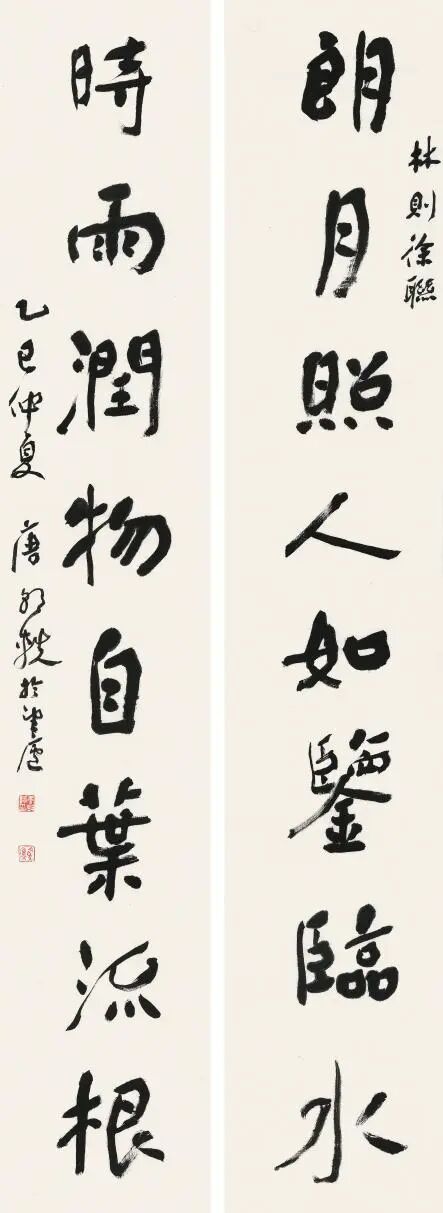 林則徐聯
朗月照人如鑒臨水
時雨潤物自葉流根
乙巳仲夏 於望廬